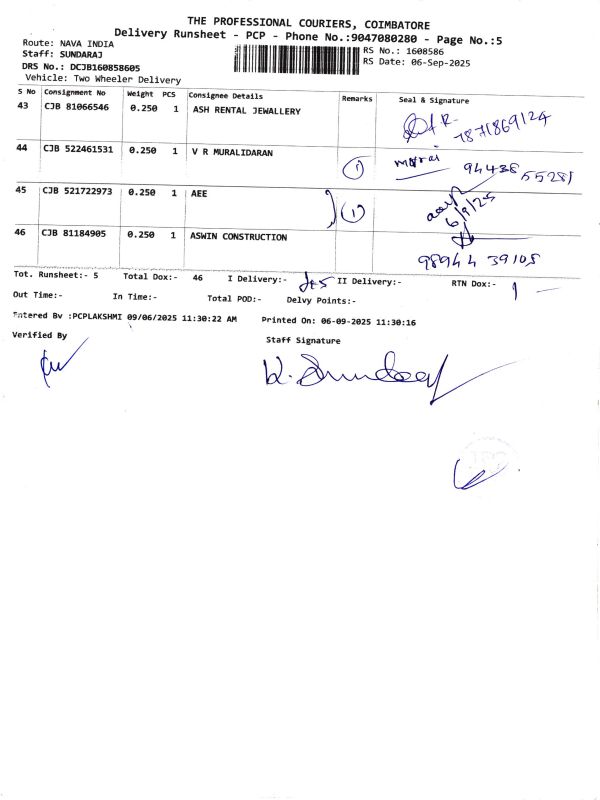 THE PROFESSIONAL COURIERS, COIMBATORE
Delivery Runsheet - PCP - Phone No.:9047080280 - Page No.:5
Route: NAVA INDIA
RS No.: 1608586
Staff: SUNDARAJ
RS Date: 06-Sep-2025
DRS No.: DCJB160858605
Vehicle: Two Wheeler Delivery
S No Consignment No Weight PCS Consignee Details Remarks Seal & Signature
43 CJB 81066546 0.250 1 ASH RENTAL JEWELLERY
7871869124
44 CJB 522461531 0.250 1 V R MURALIDARAN (1)
94438 55281
45 CJB 521722973 0.250 1 AEE (1)
6/9/25
46 CJB 81184905 0.250 1 ASWIN CONSTRUCTION
98944 39105
Tot. Runsheet:- 5 Total Dox:- 46 I Delivery:- II Delivery:- RTN Dox:- 1
Out Time:- In Time:- Total POD:- Delvy Points:-
Entered By :PCPLAKSHMI 09/06/2025 11:30:22 AM Printed On: 06-09-2025 11:30:16
Verified By
Staff Signature